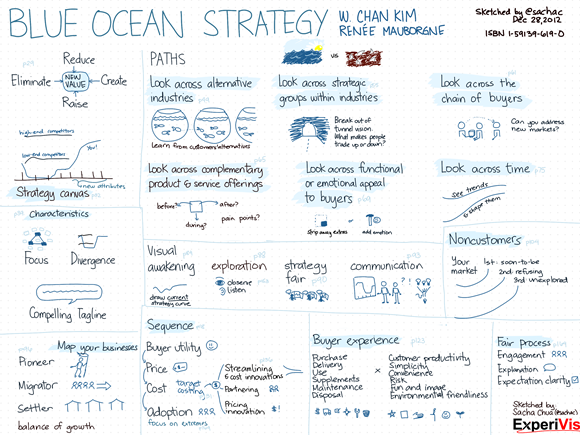 BLUE OCEAN STRATEGY
W. CHAN KIM
RENÉE MAUBORGNE
Sketched by @sachac
Dec 28, 2012
ISBN 1-59139-619-0
Reduce
Eliminate
NEW VALUE
Create
Raise
high-end competitors
low-end competitors
You!
new attributes
Strategy canvas
Characteristics
Focus
Divergence
Compelling Tagline
PATHS
vs
Look across alternative
industries
Learn from customers/alternatives
Look across strategic
groups within industries
Break out of
tunnel vision.
What makes people
trade up or down?
Look across the
chain of buyers
Can you address
new markets?
Look across complementary
product & service offerings
before
after?
during?
pain points?
Look across functional
or emotional appeal
to buyers
strip away extras
or
add emotion
Look across time
see trends
& shape them
Visual
awakening
draw current
strategy canvas
exploration
observe
listen
strategy
fair
communication
Noncustomers
Your
market
1st: soon-to-be
2nd: refusing
3rd: unexplored
Map your businesses
Pioneer
Migrator
Settler
balance of growth
Sequence
Buyer utility
Price
Cost
target
costing
Adoption
focus on extremes
Streamlining
& cost innovations
Partnering
Pricing
innovation
Buyer experience
Purchase
Delivery
Use
Supplements
Maintenance
Disposal
x
Customer productivity
Simplicity
Convenience
Risk
Fun and image
Environmental friendliness
Fair process
Engagement
Explanation
Expectation clarity
Sketched by:
Sacha Chua (@sachac)
ExperiVis